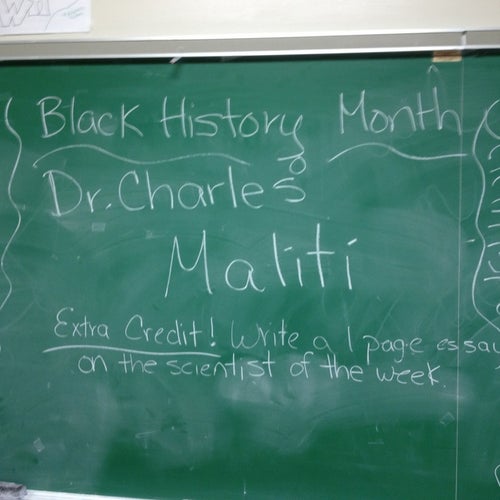 Black History Month
Dr. Charles
Maliti
Extra Credit! Write a 1 page essay
on the scientist of the week.